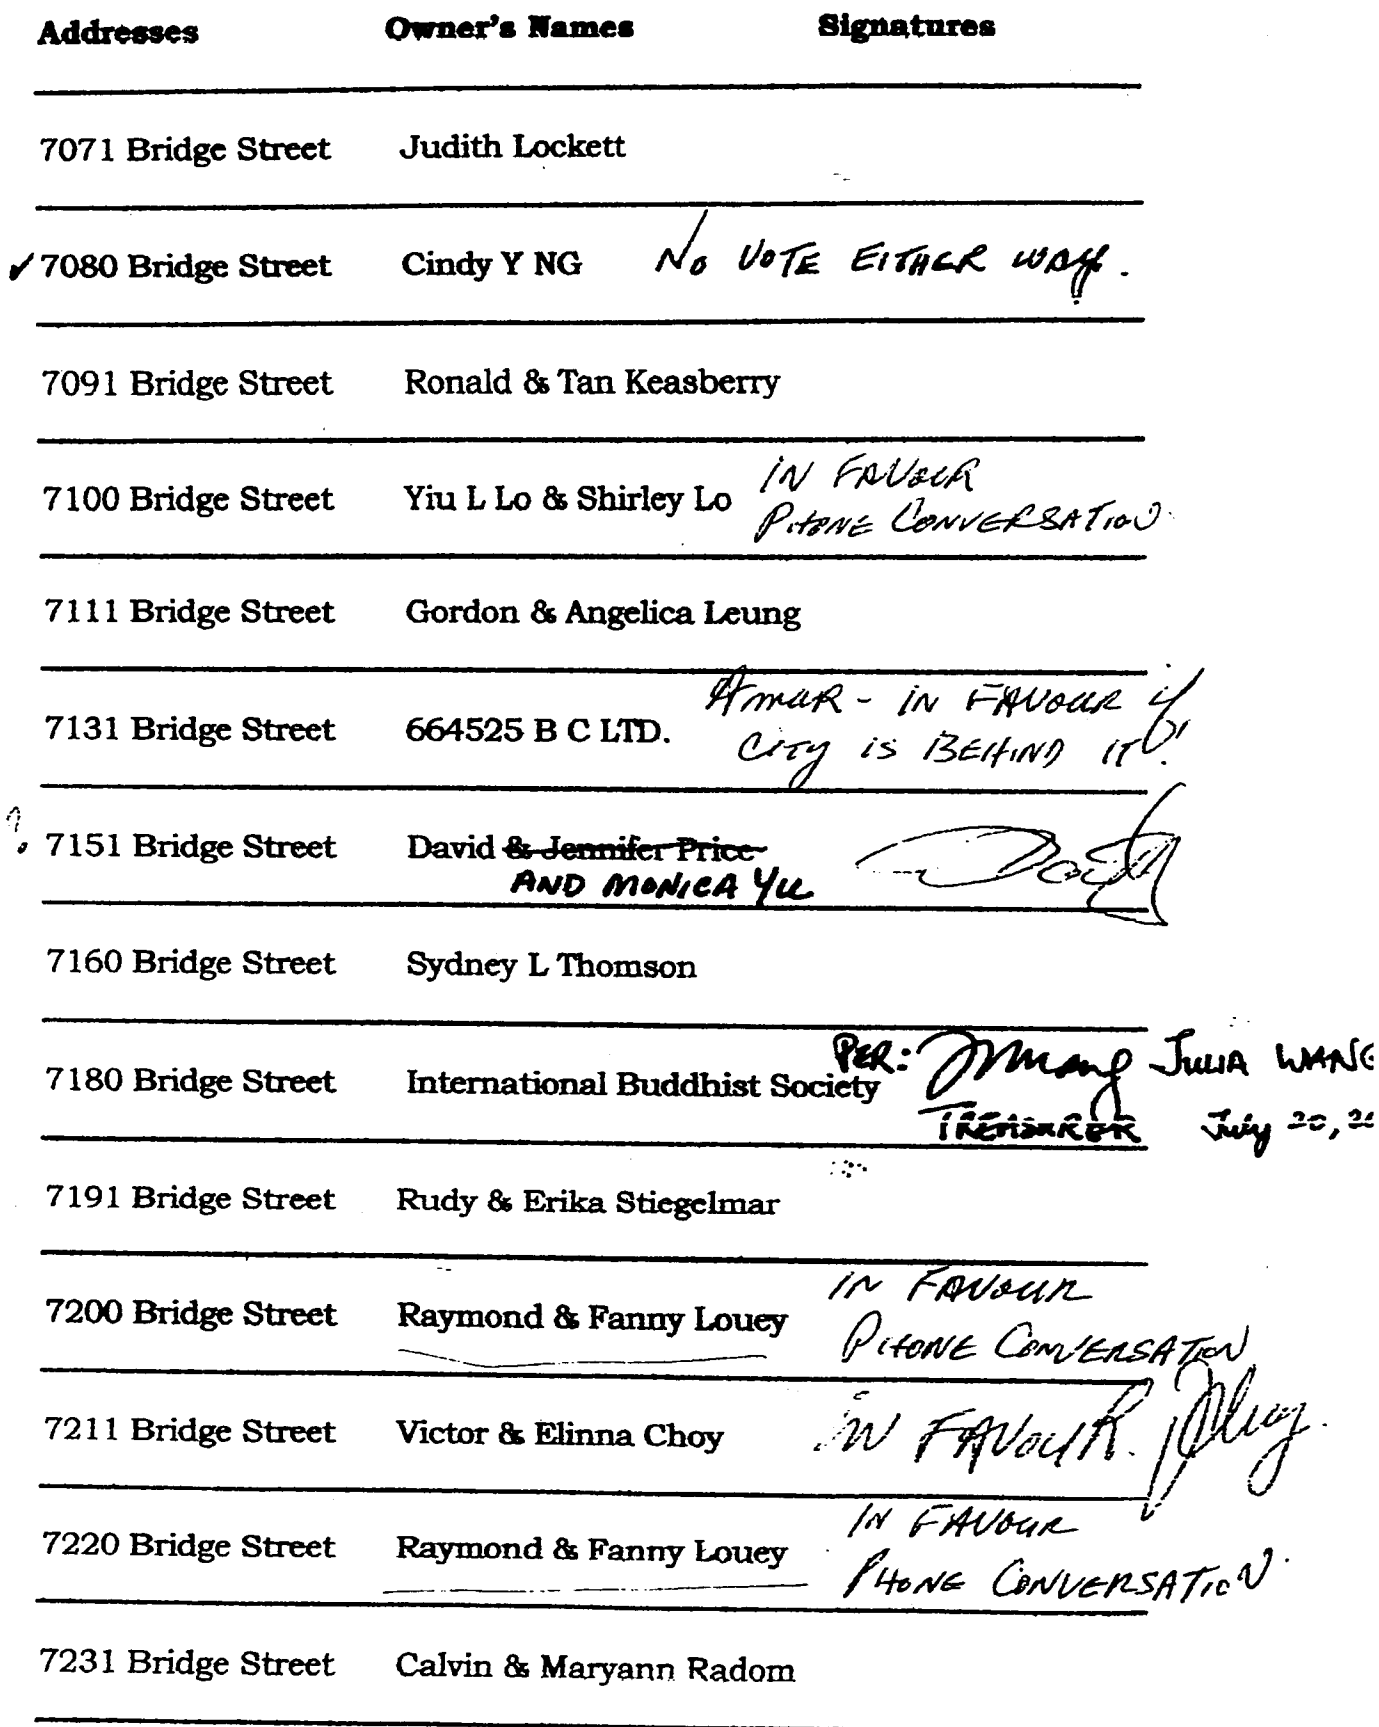 Addresses Owner's Names Signatures
7071 Bridge Street Judith Lockett
✓ 7080 Bridge Street Cindy Y NG No VOTE EITHER WAY.
7091 Bridge Street Ronald & Tan Keasberry
IN FAVOUR
7100 Bridge Street Yiu L Lo & Shirley Lo PHONE CONVERSATION
7111 Bridge Street Gordon & Angelica Leung
AMAR - IN FAVOUR if
7131 Bridge Street 664525 B C LTD. CITY IS BEHIND IT!
? 7151 Bridge Street David & Jennifer Price
AND MONICA YU
7160 Bridge Street Sydney L Thomson
PER: JULIA WANG
7180 Bridge Street International Buddhist Society
TREASURER July 20, 20
7191 Bridge Street Rudy & Erika Stiegelmar
IN FAVOUR
7200 Bridge Street Raymond & Fanny Louey PHONE CONVERSATION
7211 Bridge Street Victor & Elinna Choy IN FAVOUR.
IN FAVOUR
7220 Bridge Street Raymond & Fanny Louey PHONE CONVERSATION.
7231 Bridge Street Calvin & Maryann Radom